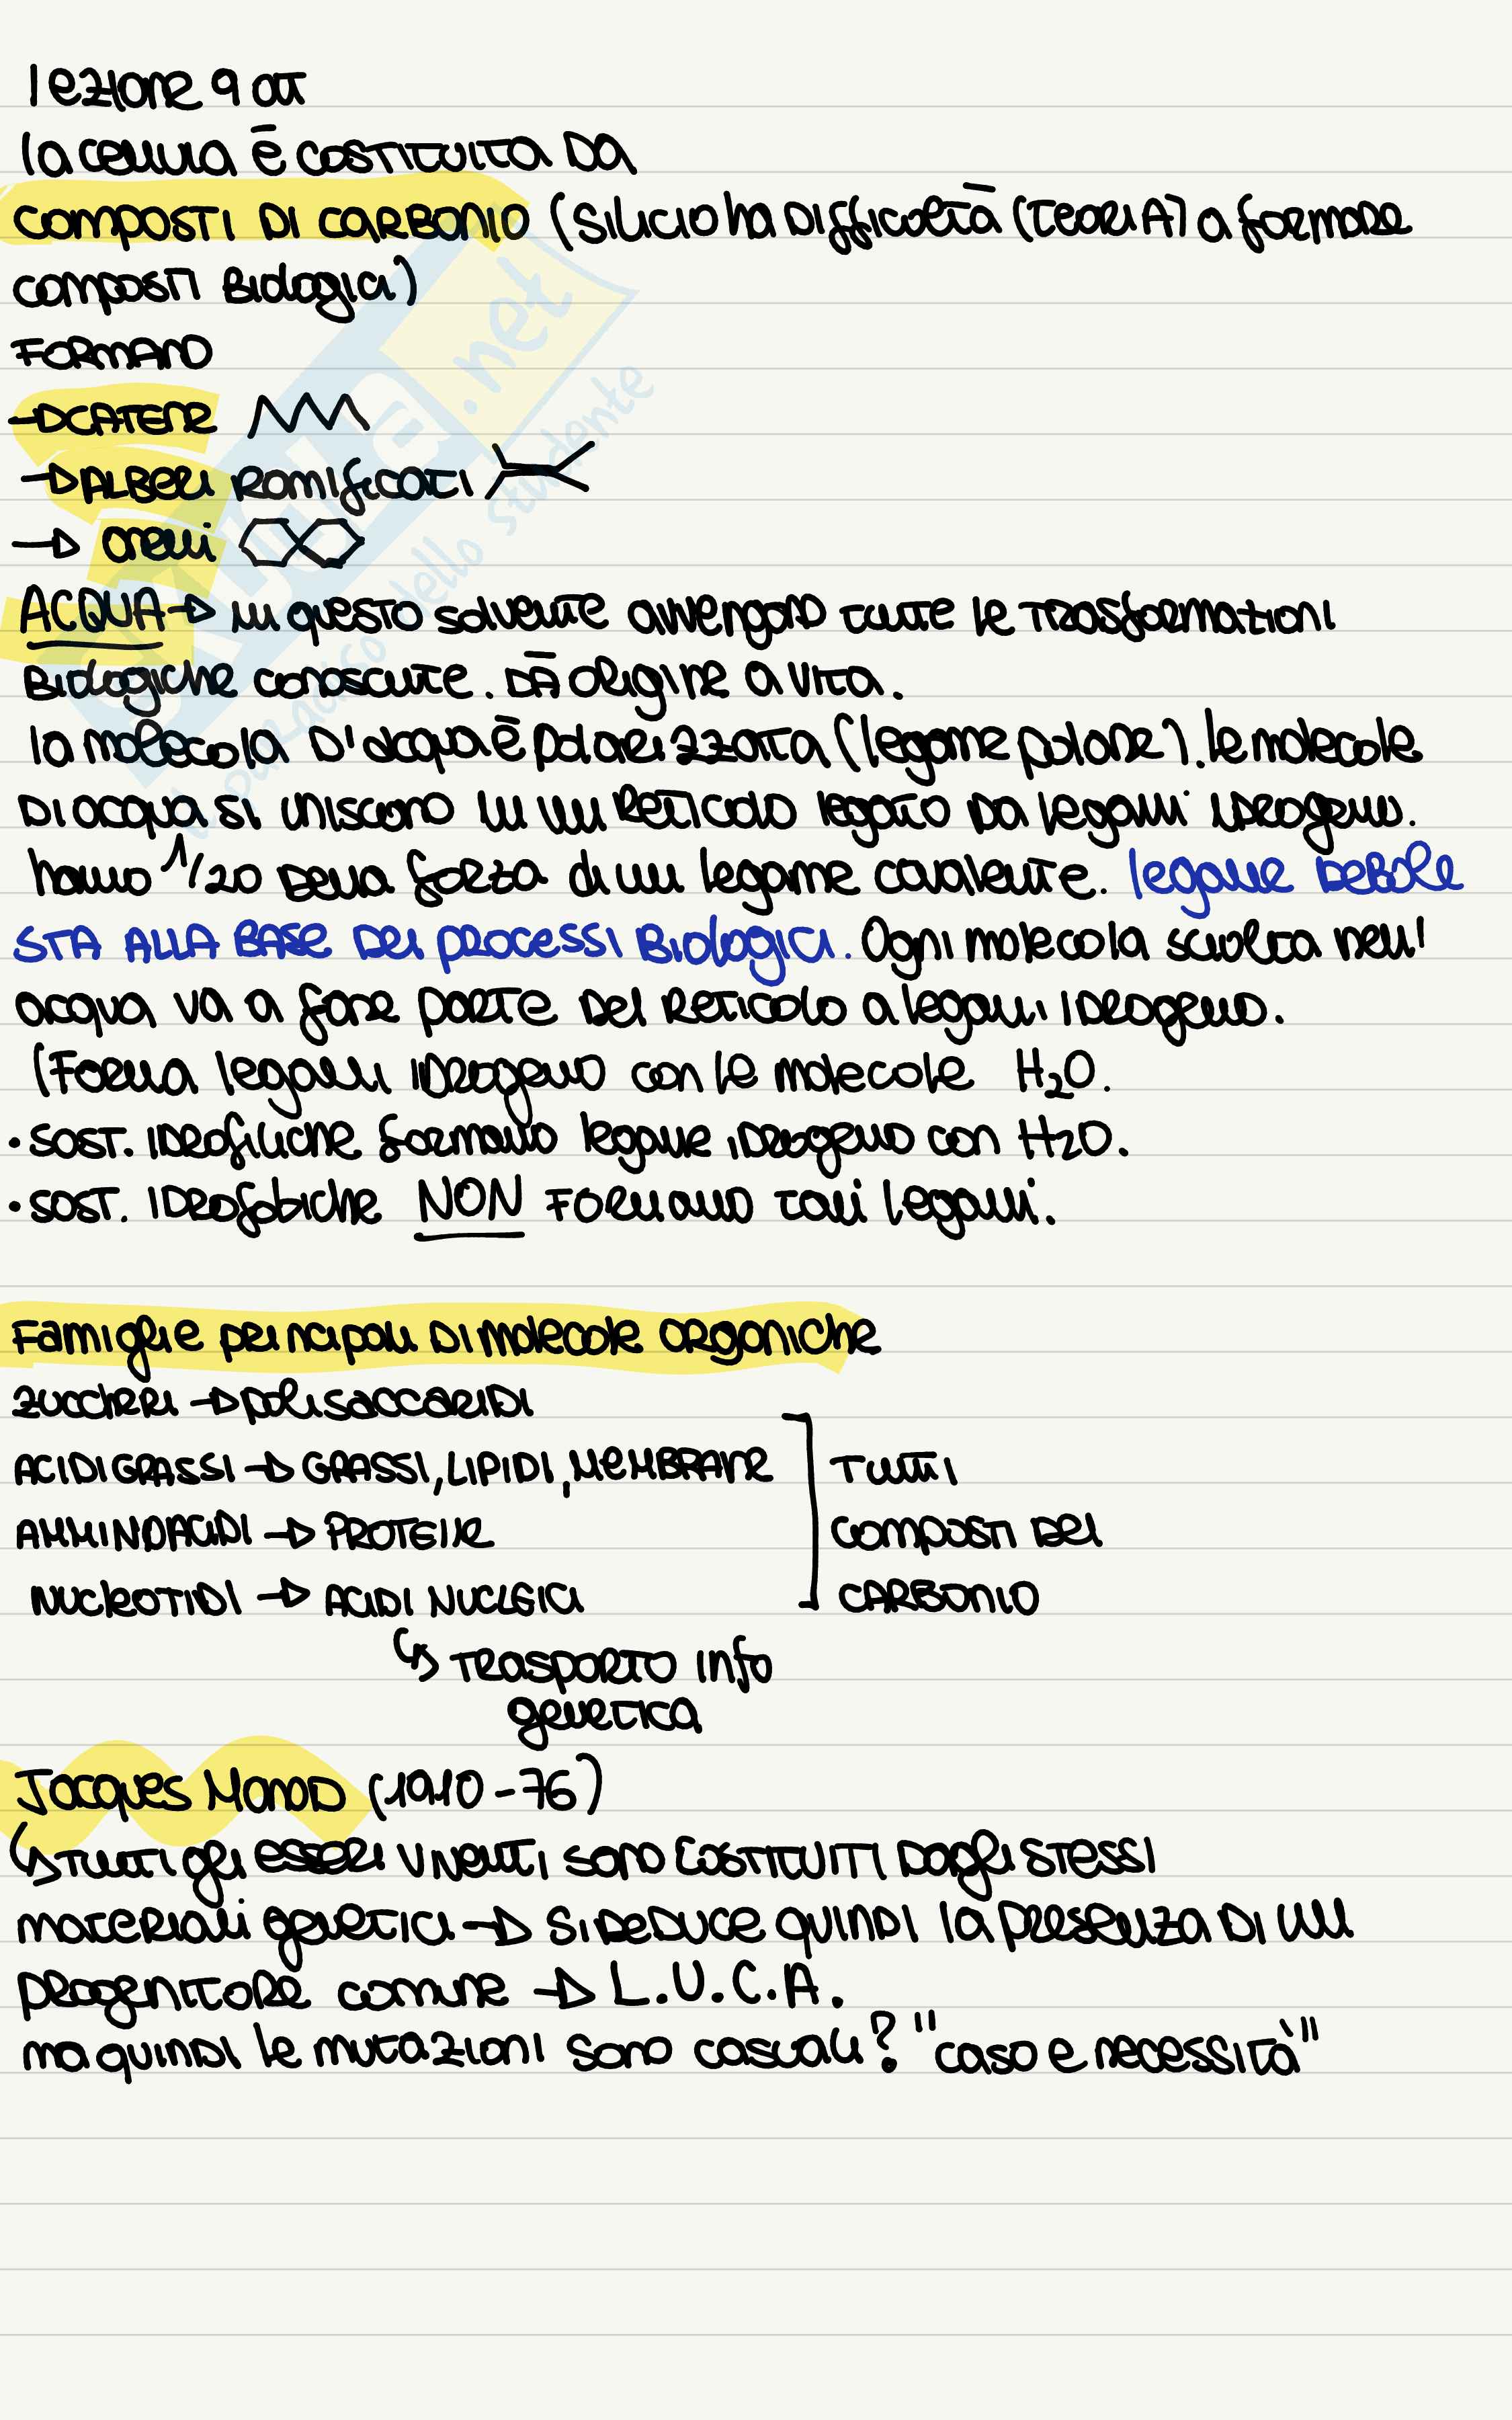 lezione 9 ott
la cellula è costituita da
composti di carbonio (silicio ha difficoltà (teoria) a formare
composti biologici)
formano
→ catene
→ alberi ramificati
→ anelli
ACQUA → in questo solvente avvengono tutte le trasformazioni
biologiche conosciute. Dà origine a vita.
la molecola d'acqua è polarizzata (legame polare). le molecole
di acqua si uniscono in un reticolo legato da legami idrogeno.
hanno 1/20 della forza di un legame covalente. legame debole
sta alla base dei processi biologici. Ogni molecola sciolta nell'
acqua va a fare parte del reticolo a legami idrogeno.
(Forma legami idrogeno con le molecole H₂O.
• sost. idrofiliche formano legame idrogeno con H₂O.
• sost. idrofobiche NON formano tali legami.
Famiglie principali di molecole organiche
zuccheri → polisaccaridi
ACIDI GRASSI → GRASSI, LIPIDI, MEMBRANE
AMMINOACIDI → PROTEINE
NUCLEOTIDI → ACIDI NUCLEICI
↳ trasporto info
genetica
tutti
composti del
carbonio
Jacques Monod (1910-76)
↳ tutti gli esseri viventi sono costituiti dagli stessi
materiali genetici → si deduce quindi la presenza di un
progenitore comune → L.U.C.A.
ma quindi le mutazioni sono casuali? "caso e necessità"
skuola.net
il paradiso dello studente